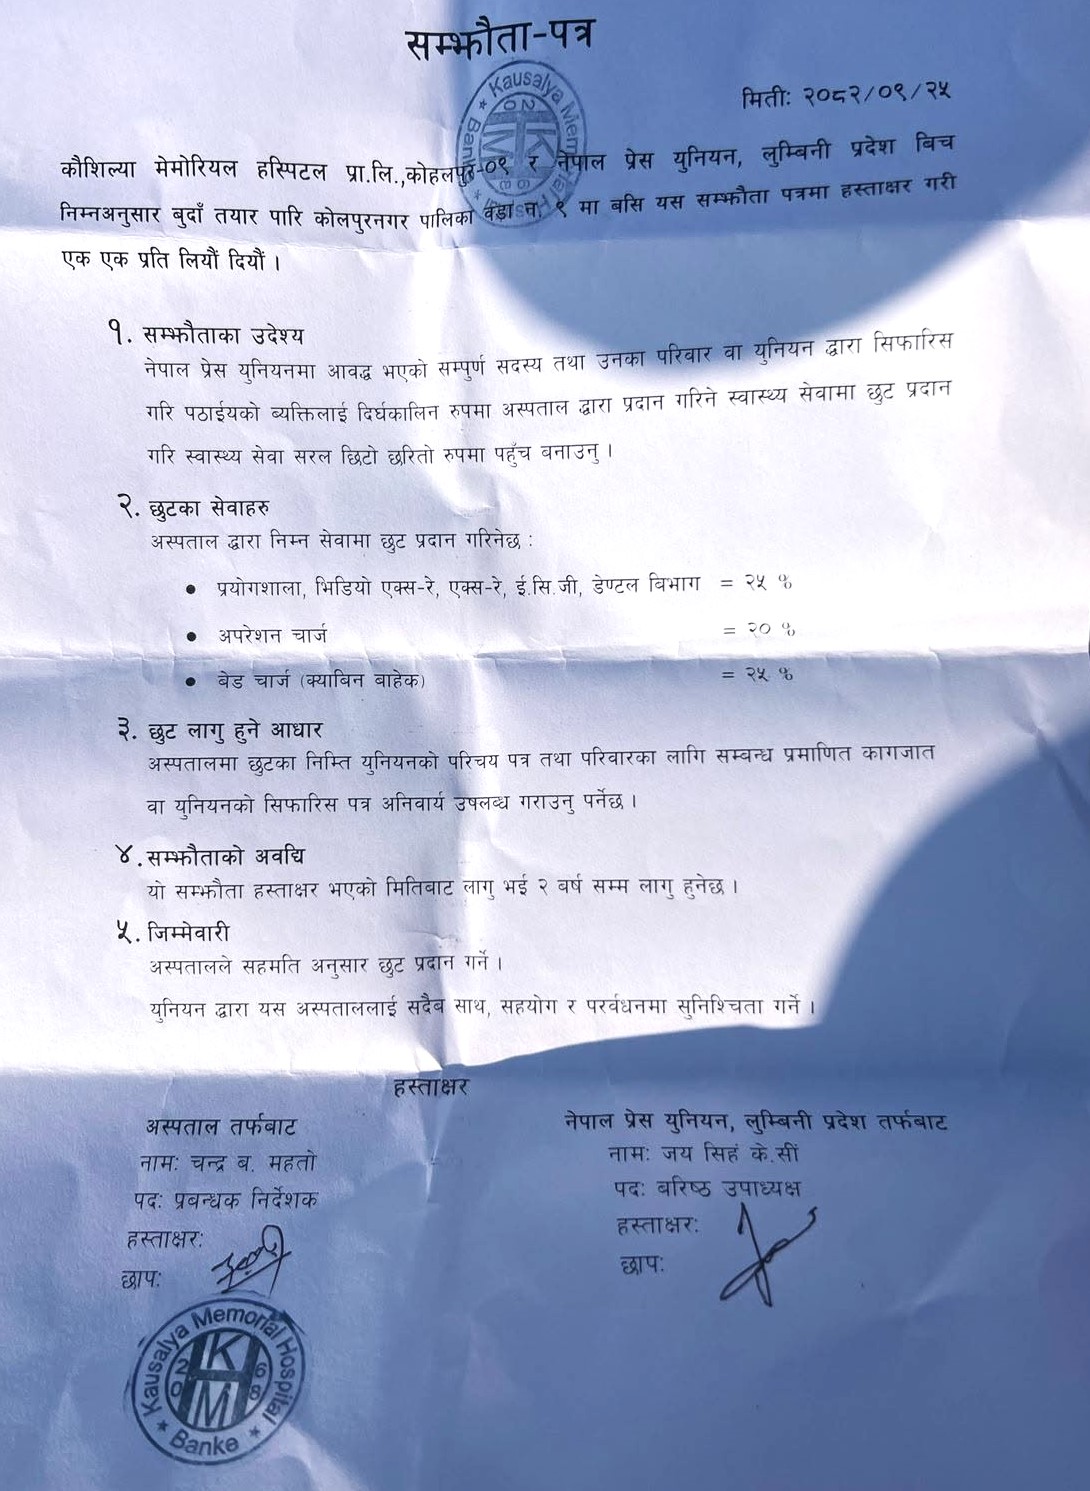 सम्झौता-पत्र
मिती: २०८२/०९/२५
कौशिल्या मेमोरियल हस्पिटल प्रा.लि.,कोहलपुर-०९ र नेपाल प्रेस युनियन, लुम्बिनी प्रदेश बिच
निम्नअनुसार बुदाँ तयार पारि कोलपुरनगर पालिका वडा न. ९ मा बसि यस सम्झौता पत्रमा हस्ताक्षर गरी
एक एक प्रति लियौं दियौं ।
१. सम्झौताका उदेश्य
नेपाल प्रेस युनियनमा आवद्ध भएको सम्पुर्ण सदस्य तथा उनका परिवार वा युनियन द्वारा सिफारिस
गरि पठाईयको ब्यक्तिलाई दिर्घकालिन रुपमा अस्पताल द्वारा प्रदान गरिने स्वास्थ्य सेवामा छुट प्रदान
गरि स्वास्थ्य सेवा सरल छिटो छरितो रुपमा पहुँच बनाउनु ।
२. छुटका सेवाहरु
अस्पताल द्वारा निम्न सेवामा छुट प्रदान गरिनेछ :
• प्रयोगशाला, भिडियो एक्स-रे, एक्स-रे, ई.सि.जी, डेण्टल बिभाग = २५ %
• अपरेशन चार्ज = २० %
• बेड चार्ज (क्याबिन बाहेक) = २५ %
३. छुट लागु हुने आधार
अस्पतालमा छुटका निम्ति युनियनको परिचय पत्र तथा परिवारका लागि सम्बन्ध प्रमाणित कागजात
वा युनियनको सिफारिस पत्र अनिवार्य उषलब्ध गराउनु पर्नेछ ।
४. सम्झौताको अवद्यि
यो सम्झौता हस्ताक्षर भएको मितिबाट लागु भई २ बर्ष सम्म लागु हुनेछ ।
५. जिम्मेवारी
अस्पतालले सहमति अनुसार छुट प्रदान गर्ने ।
युनियन द्वारा यस अस्पताललाई सदैब साथ, सहयोग र परर्वधनमा सुनिश्चिता गर्ने ।
हस्ताक्षर
अस्पताल तर्फबाट
नाम: चन्द्र ब. महतो
पद: प्रबन्धक निर्देशक
हस्ताक्षर:
छाप:
नेपाल प्रेस युनियन, लुम्बिनी प्रदेश तर्फबाट
नाम: जय सिहं के.सीं
पद: बरिष्ठ उपाध्यक्ष
हस्ताक्षर:
छाप:
Kausalya Memorial Hospital
KHM
2068
Banke